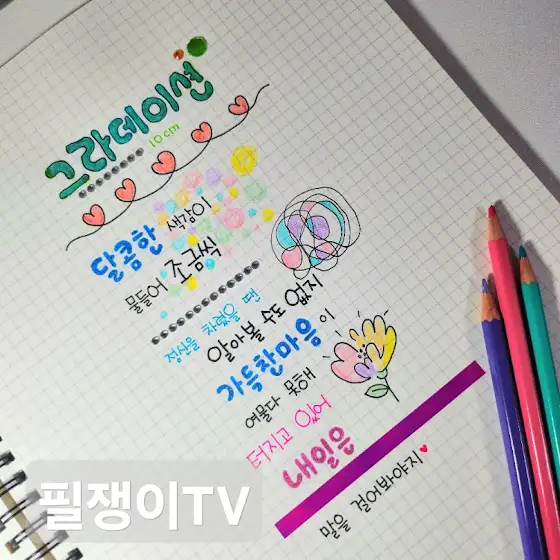 그라데이션
10cm
달콤한 색감이
물들어 조금씩
정신을 차렸을 땐
알아볼 수도 없지
가득찬마음이
여물다 못해
터지고 있어
내일은
말을 걸어봐야지
필쟁이TV